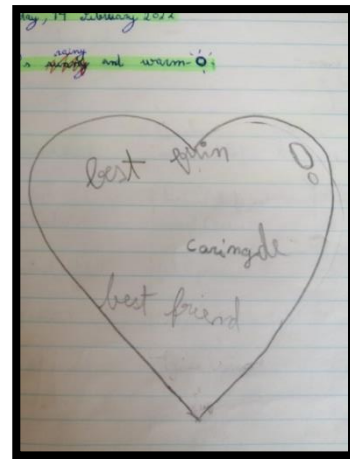 ay, 17 February 2022
rainy
and warm
best
caring
best friend